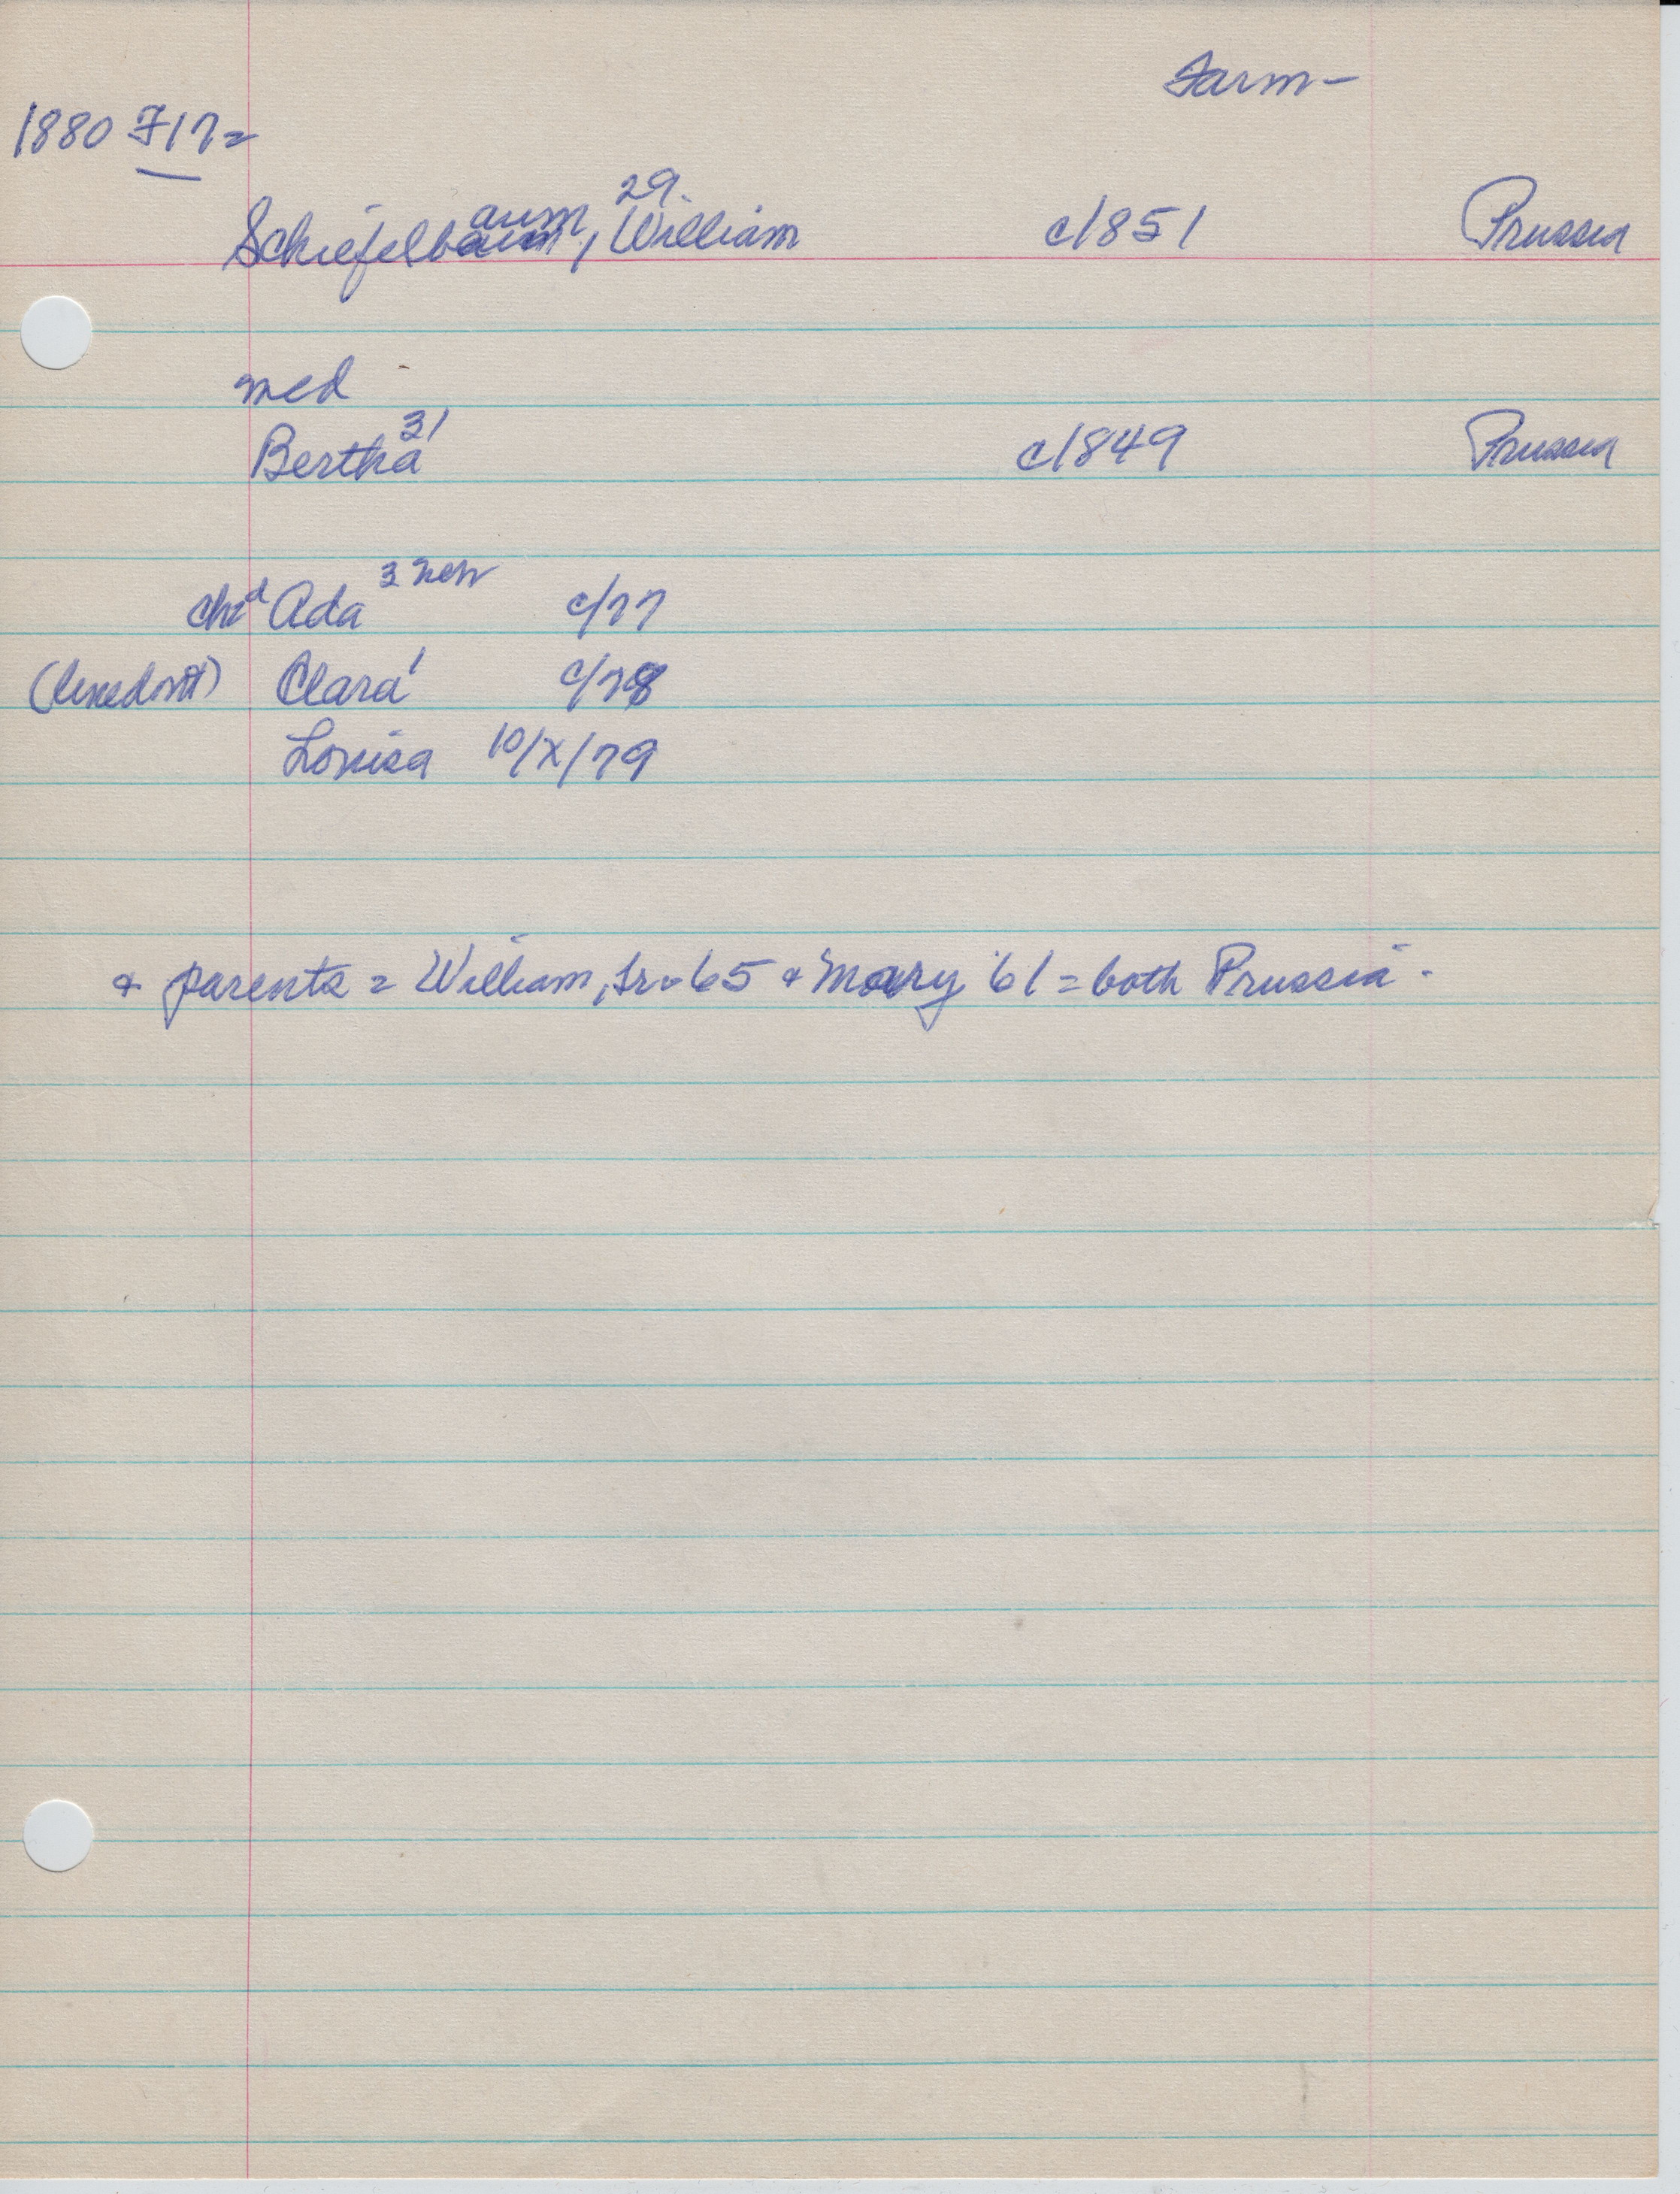 Farm-
1880 F17=
Schiefelbaum, William 29 c1851 Prussia
med
Bertha 31 c1849 Prussia
chd Ada 3 c/77
Clara 1 c/78
Louisa 10/X/79
+ parents = William, Sr. 65 + Mary 61 = both Prussia.